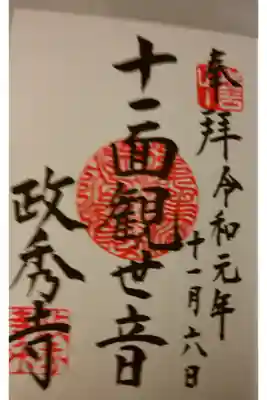 奉拝 令和元年
十一月六八日
十一面観世音
政秀寺